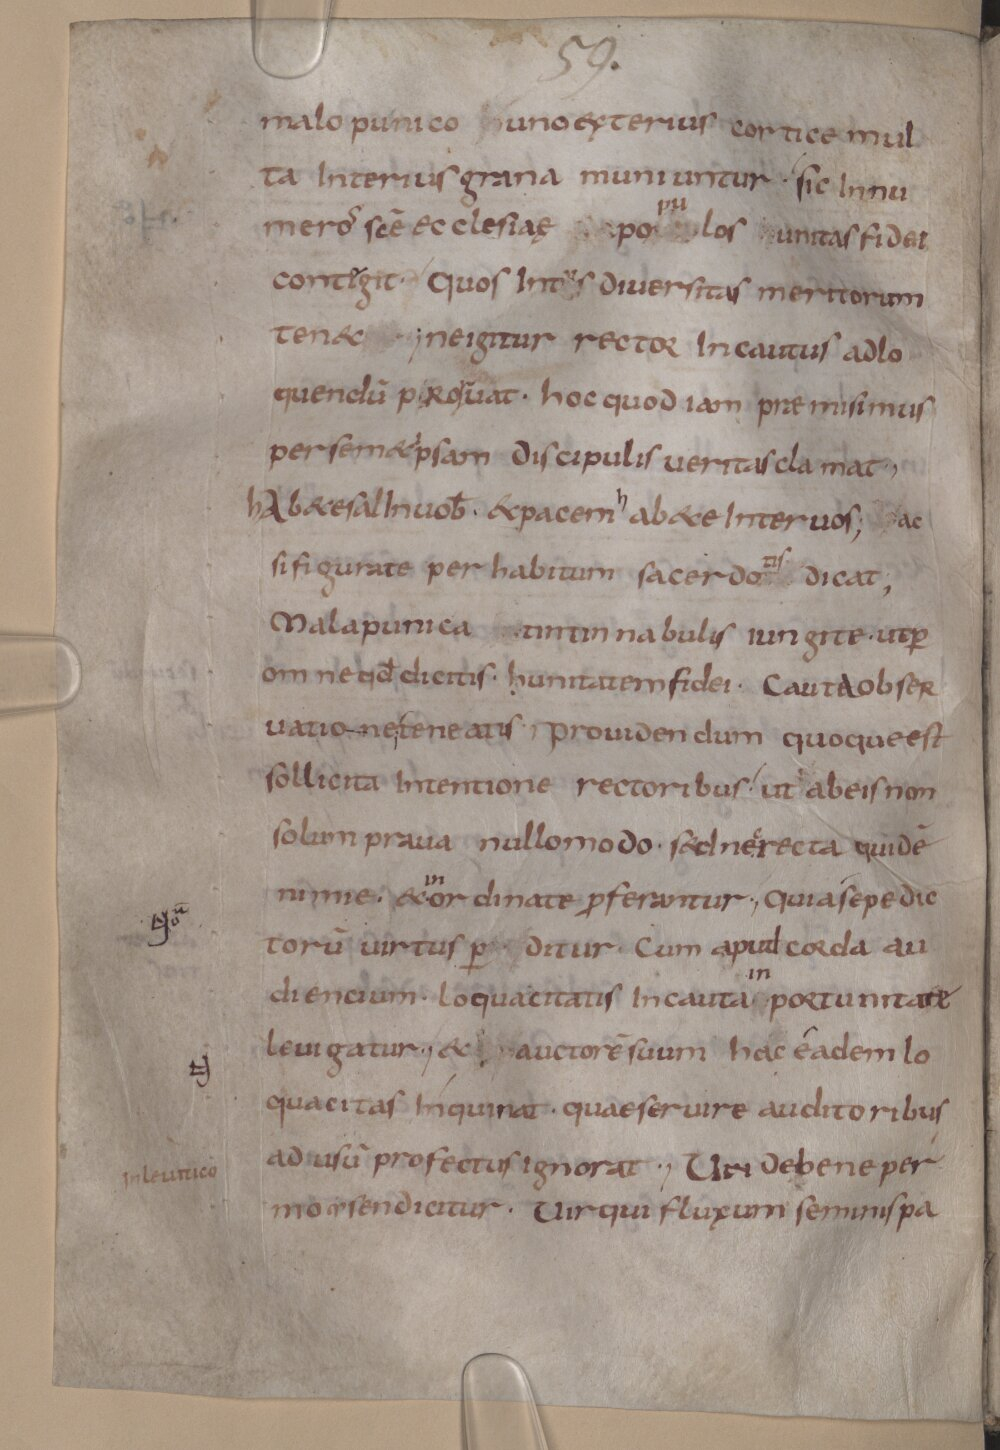 59.
malo punico uno exterius cortice mul
ta Interius grana muniuntur · sic Innu
meros scē ecclesiaę populos unitas fidei
contegit · Quos Intus diuersitas meritorum
ten& ne igitur rector Incautus adlo
quendū proruat · hoc quod iam premisimus
per sem&ipsam discipulis ueritas clamat ·,
hAb&e sal In uob · & pacem hab&e Inter uos; ac
si figurate per habitum sacerdotis dicat;
Mala punica tintinnabulis iungite · ut per
omne qđ dicitis · hunitatem fidei · Cauta obser
uatione teneatis · Prouidendum quoque est
sollicita Intentione rectoribus · ut ab eis non
solum praua nullomodo · sed ne recta quidē
nimie · & inordinate proferantur ·, Quia sepe dic
torū uirtus perditur · Cum apud corda au
diencium · loquacitatis Incauta inportunitate
leuigatur ·, & auctorē suum hac eadem lo
quacitas Inquinat · quae seruire auditoribus
ad usū profectus ignorat ·, Unde bene per
In leuitico
mosen dicitur · Uir qui fluxum seminis pa